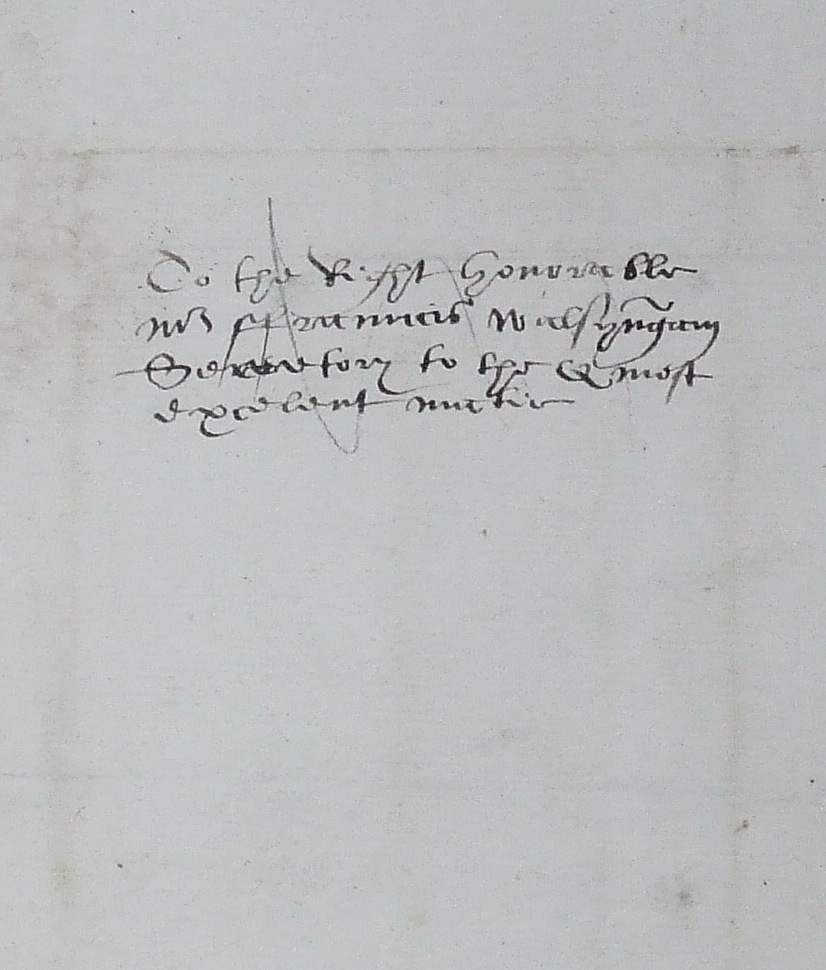 To the Right Honorable
mr ffranncis Walsyngam
Secretory to the Q most
excelent matie